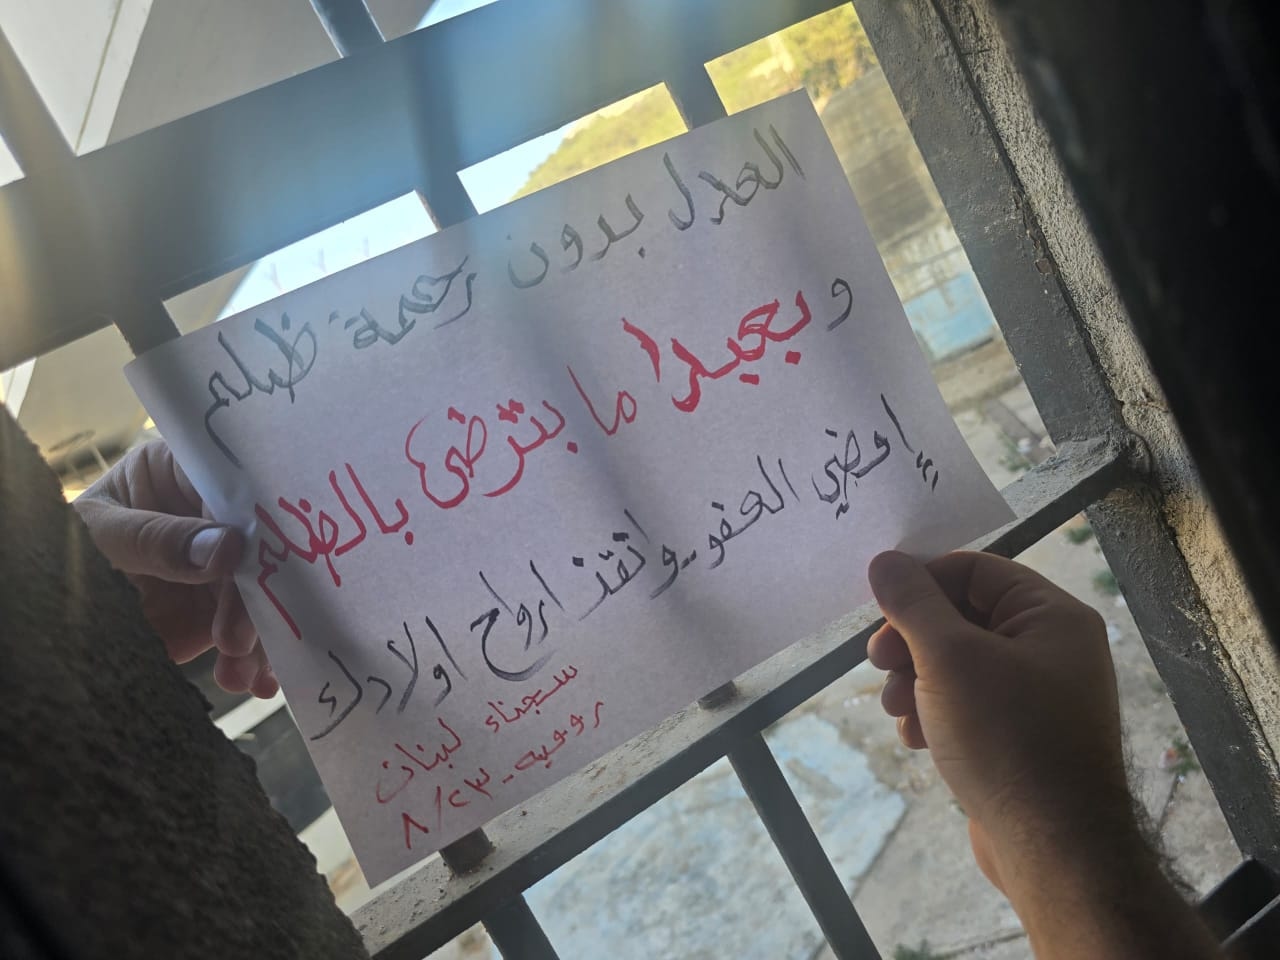 العدل بدون رحمة ظلم
و بعيدا ما بترضى بالظلم
إمضي العفو - وانقذ ارواح اولادك
سجناء لبنان
روميه - ٨/٢٣